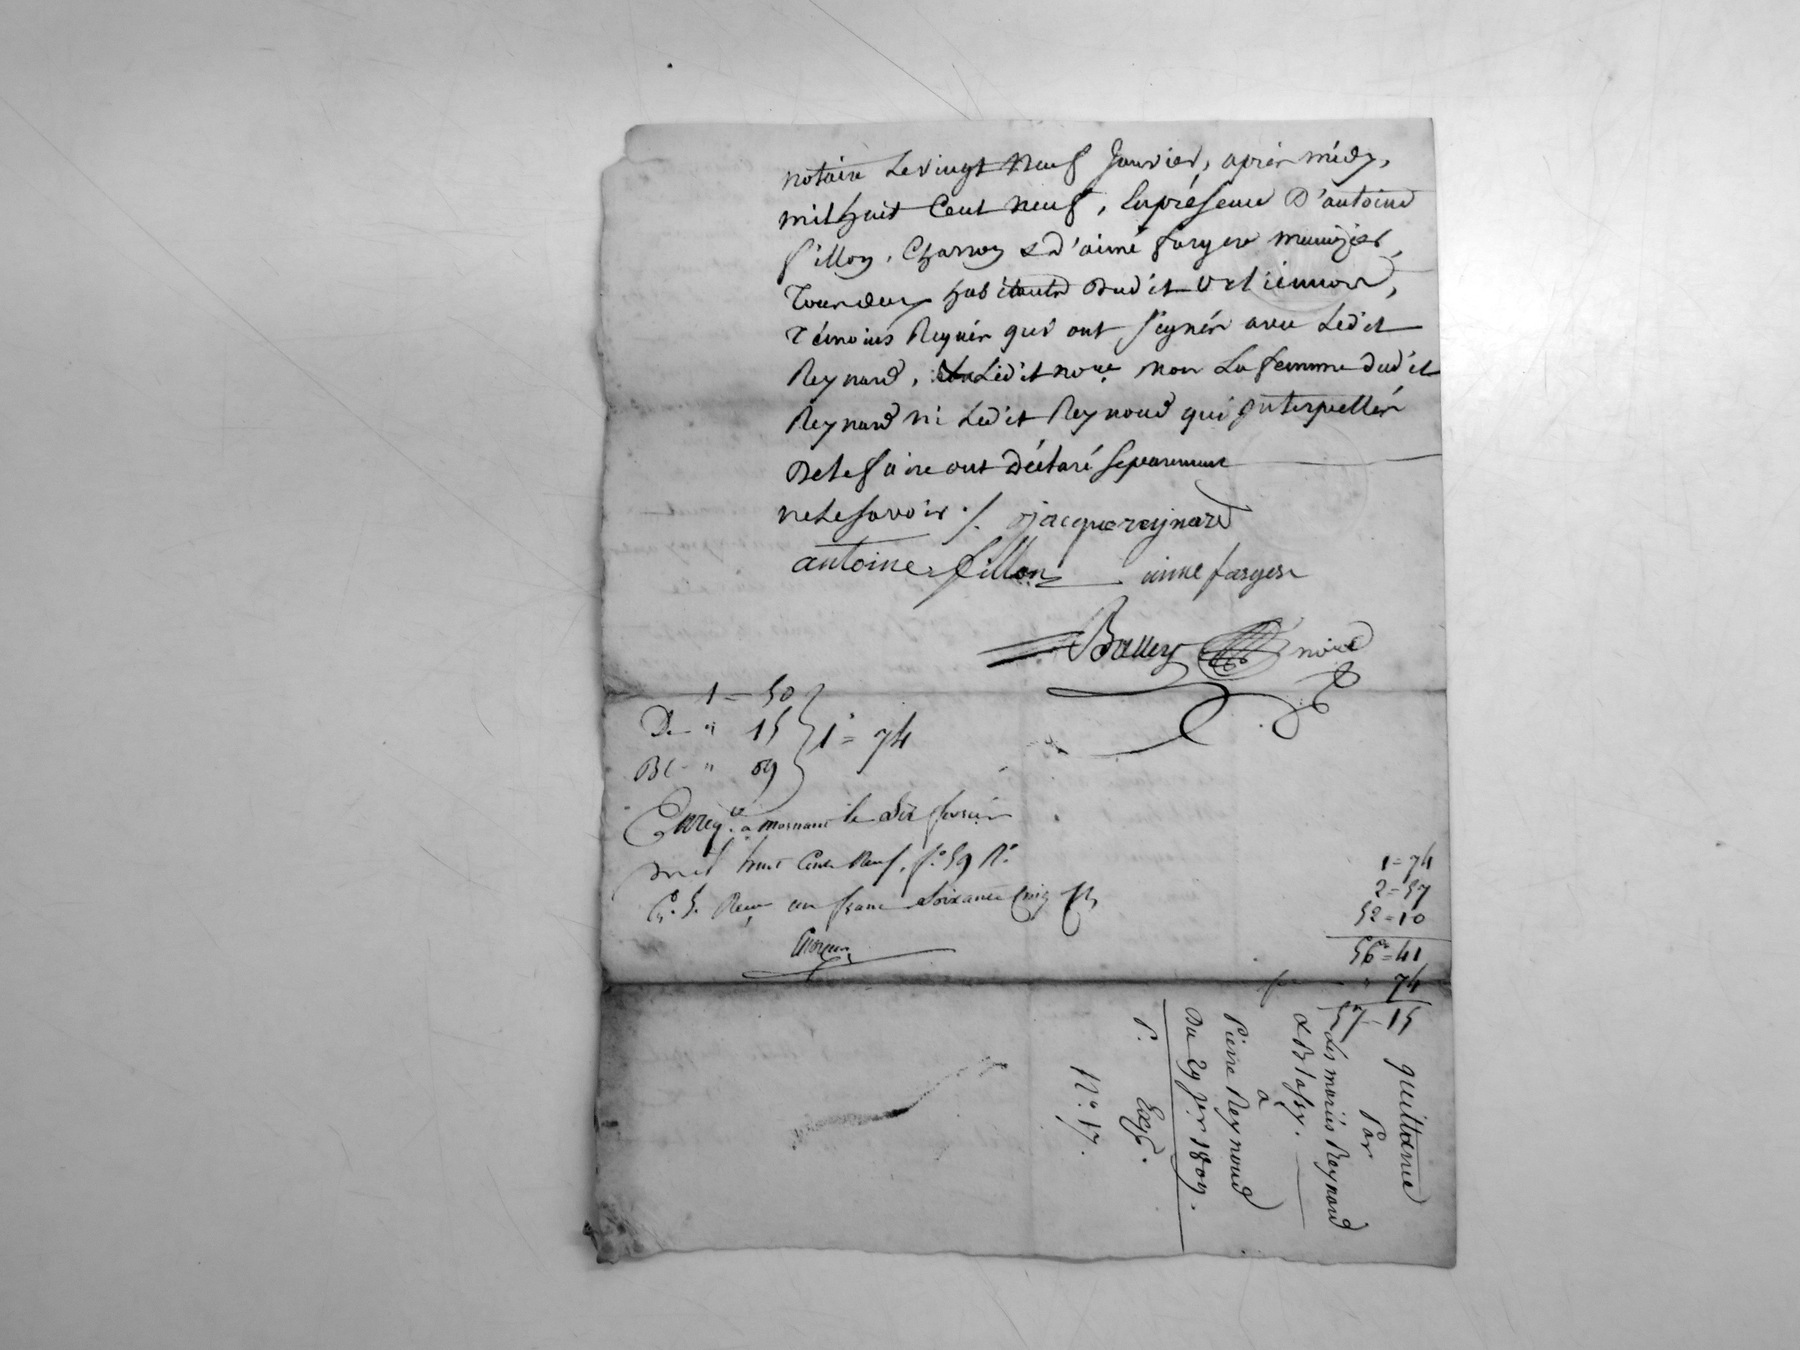 notaire le vingt neuf Janvier, après midy,
mil huit Cent neuf, En présence D'antoine
fillon, Charron & d'aimé farges menuizier,
Tourneur habitants dudit
Témoins Requis qui ont signés avec Ledit
Reynard, Ledit no.re Non La femme dudit
Reynard ni Ledit Reynoud qui Interpellés
De le faire ont Déclaré séparément
ne le savoir ./. jacque reynard
antoine fillon aimé farges
Balley no.re
1 = 50
De " 15 } 1 = 74
BC " 09
Enreg.ré a mornant le Six fevrier
mil huit Cent Neuf, f.o 59 R.o
C. 5. Reçu un franc Soixante Cinq
1 = 74
2 = 57
52 = 10
56 = 41
" 74
57 - 15
quittance
Par
Les mariés Reynard
& Blassy.
a
Pierre Reynoud
Du 29 j.er 1809.
P. Exp.
N.o 17.